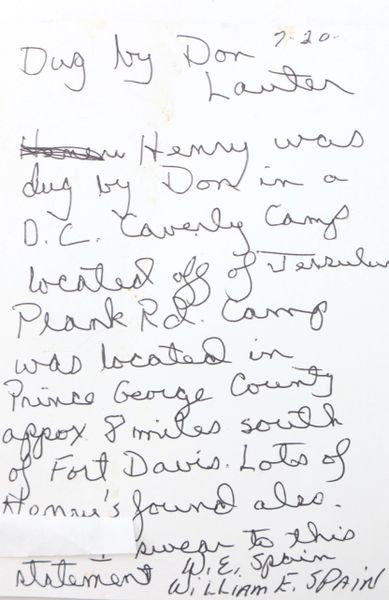 7-20-
Dug by Don
Lauter
Henry was
dug by Don in a
D.C. Caverly Camp
located off of Jerusulum
Plank Rd. Camp
was located in
Prince George County
appox 8 miles south
of Fort Davis. Lots of
Henry's found also.
swear to this
statement W.E. Spain
WILLIAM E. SPAIN